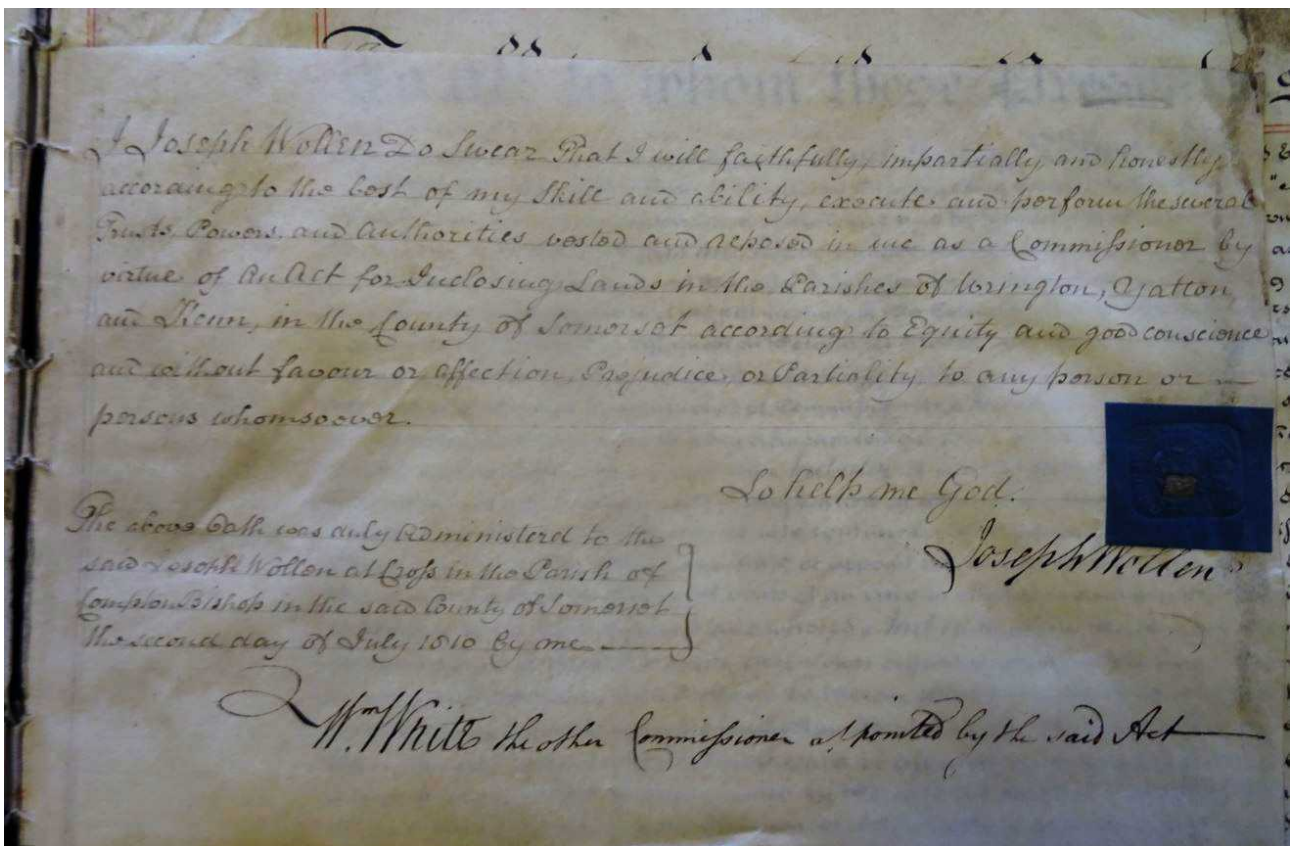 to whom these
I Joseph Wollen Do Swear That I will faithfully, impartially and honestly
according to the best of my Skill and ability, execute and perform the several
Trusts Powers and Authorities vested and reposed in me as a Commissioner by
virtue of An Act for Inclosing Lands in the Parishes of Wrington, Yatton
and Kenn, in the County of Somerset according to Equity and good conscience
and without favour or affection, Prejudice, or Partiality to any person or
persons whomsoever.
So help me God.
Joseph Wollen
The above Oath was duly administerd to the
said Joseph Wollen at Cross in the Parish of
Compton Bishop in the said County of Somerset
the second day of July 1810 by me
Wm. White the other Commissioner appointed by the said Act